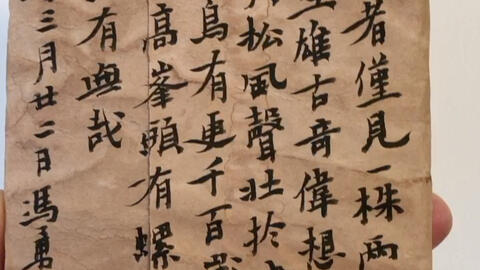 者僅見一株兩
雄古奇偉想
松風聲壯於
有更千百
高峯頭有螺
有哉
三月廿二日馮